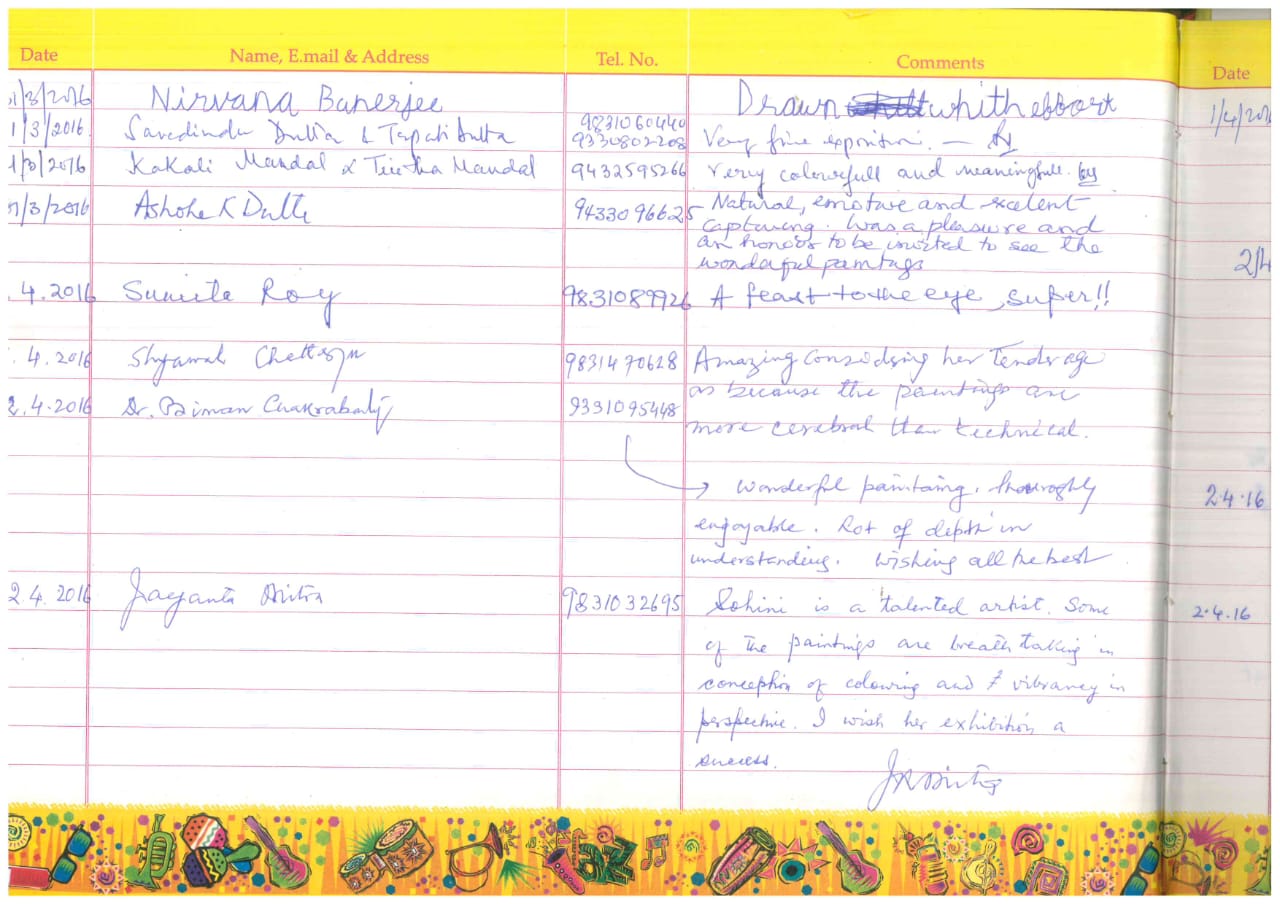 Date Name, E.mail & Address Tel. No. Comments Date
31/3/2016 Nirvana Banerjee Drawn whith ebbort
9831060440
1/3/2016. Saredindu Dutta & Tapati Dutta 9330802208 Very fine exposition. —
1/3/2016 Kakali Mandal & Tirtha Mandal 9432595266 Very colourfull and meaningfull.
31/3/2016 Ashoke K Dutta 9433096625 Natural, emotive and excelent
capturing. Was a pleasure and
an honor to be invited to see the
wonderful paintings
.4.2016 Sumita Roy 9831089926 A feast to the eye, super!!
.4.2016 Shyamal Chatterjee 9831470628 Amazing considering her tender age
as because the paintings are
2.4.2016 Dr. Biman Chakrabarty 9331095448
more cerebral than technical.
Wonderful paintaing, thouroghly
engoyable. Lot of depth in
understanding. Wishing all the best
2 4. 2016 Jayanta Mitra 9831032695 Sohini is a talented artist. Some
of the paintings are breath taking in
conception of colouring and vibrancy in
perspective. I wish her exhibition a
success.
JMitra
1/4/201
2/4
2.4.16
2.4.16